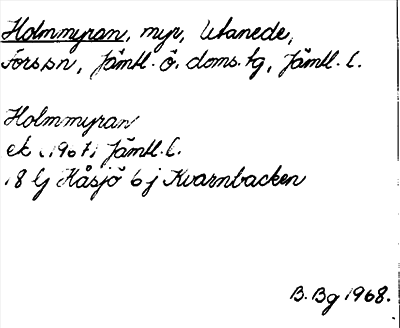 Holmmyran, myr, Utanede,
Fors sn, Jämtl. ö. doms. tg, Jämtl. l.
Holmmyran
ek (1967) Jämtl. l.
18 G Håsjö 6 j Kvarnbacken
B. Bg 1968.